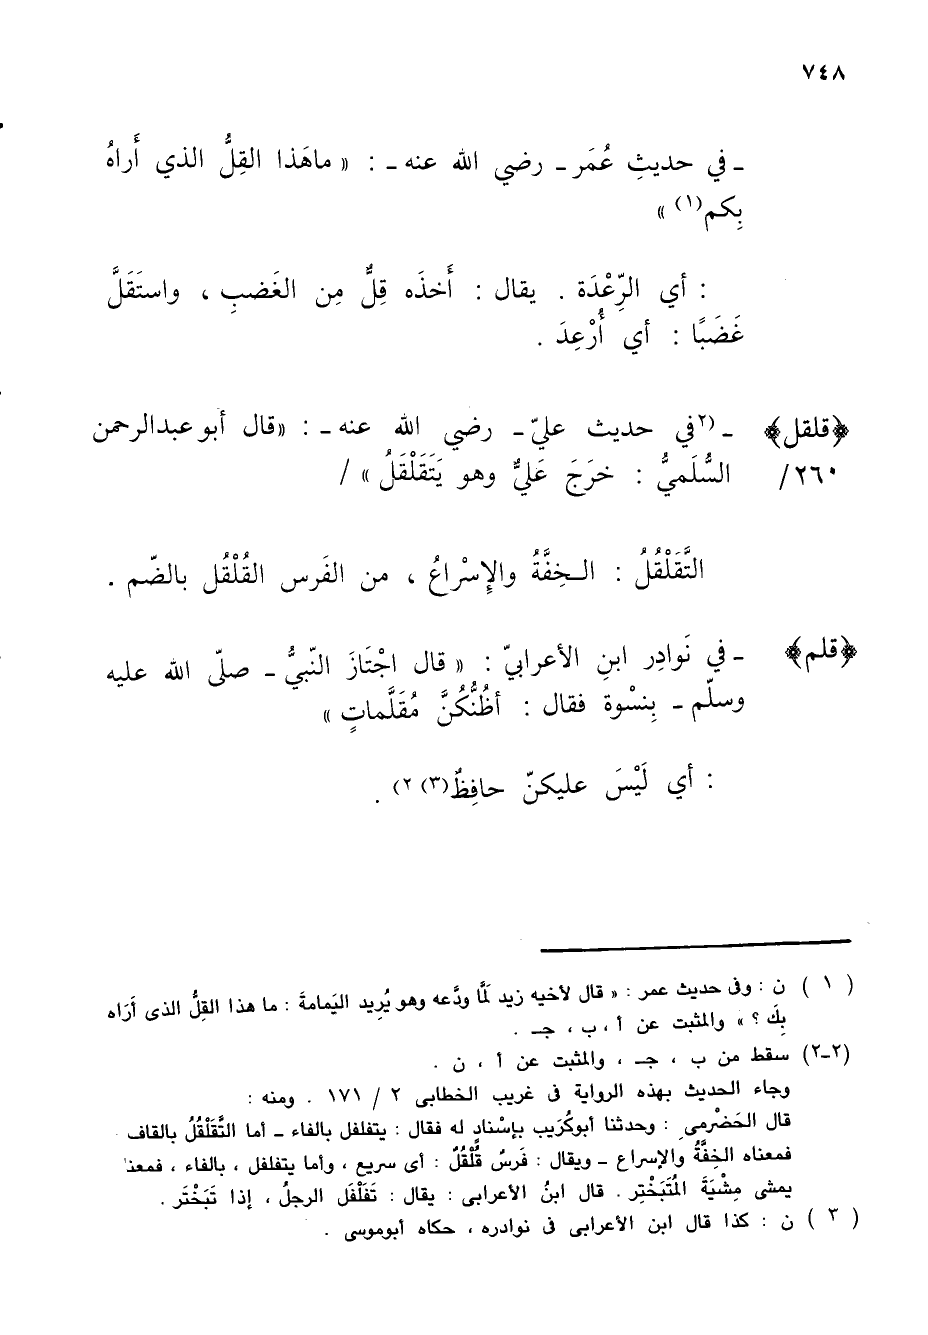 ٧٤٨
ـ في حديثِ عُمَر ـ رضي الله عنه ـ : « ماهَذا القِلُّ الذي أَراهُ
بِكم(١) »
: أي الرِّعْدَة . يقال : أَخذَه قِلٌّ مِن الغَضبِ ، واستَقَلَّ
غَضَبًا : أي أُرْعِدَ .
﴿قلقل﴾ ـ (٢في حديث عليّ ـ رضي الله عنه ـ : «قال أبو عبدالرحمن
/٢٦٠ السُّلَميُّ : خرَجَ عَليٌّ وهو يَتَقَلْقَلُ » /
التَّقَلْقُلُ : الخِفَّةُ والإِسْراعُ ، من الفَرس القُلْقُل بالضّم .
﴿قلم﴾ ـ في نَوادِر ابنِ الأعرابيّ : « قال اجْتَازَ النّبيُّ ـ صلّى الله عليه
وسلّم ـ بِنسْوة فقال : أظُنُّكُنَّ مُقَلَّماتٍ »
: أي لَيْسَ عليكنّ حافِظٌ(٣) ٢) .
( ١ ) ن : وفى حديث عمر : « قال لأخيه زيد لَمَّا ودَّعه وهو يُرِيد اليَمامةَ : ما هذا القِلُّ الذى أَرَاه
بِكَ ؟ » والمثبت عن أ ، ب ، جـ .
(٢-٢) سقط من ب ، جـ ، والمثبت عن أ ، ن .
وجاء الحديث بهذه الرواية فى غريب الخطابى ٢ / ١٧١ . ومنه :
قال الحَضْرمى : وحدثنا أبوكُرَيب بإسْنادٍ له فقال : يتفلفل بالفاء ـ أما التَّقَلْقُلُ بالقاف
فمعناه الخِفَّةُ والإسراع ـ ويقال : فَرسٌ قُلْقُلٌ : أى سريع ، وأما يتفلفل ، بالفاء ، فمعنا
يمشى مِشْيَةَ المُتَبَخْتِر . قال ابنُ الأعرابى : يقال : تَفَلْفَل الرجلُ ، إذا تَبَخْتَر .
( ٣ ) ن : كذا قال ابن الأعرابى فى نوادره ، حكاه أبوموسى .